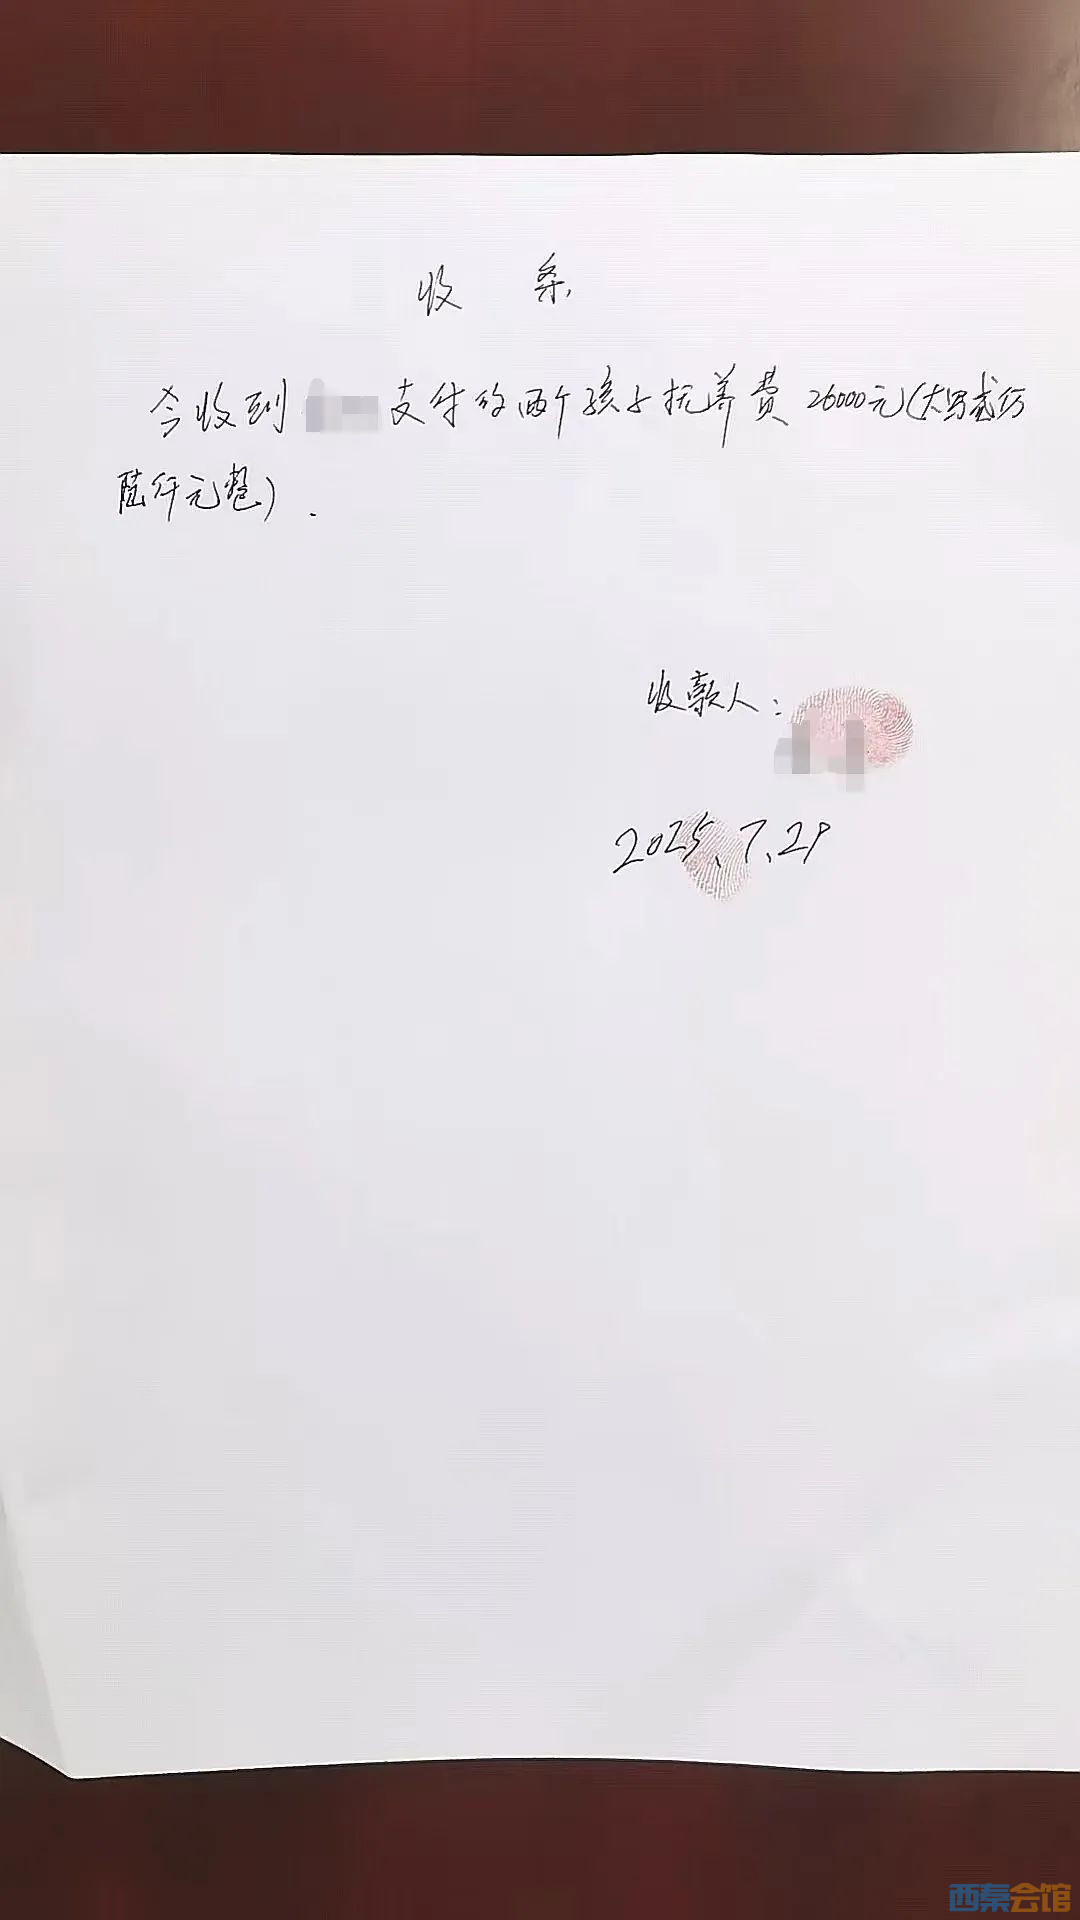 收 条
今收到 支付的两个孩子抚养费26000元(大写贰万
陆仟元整).
收款人:
2025、7、29
西秦会馆